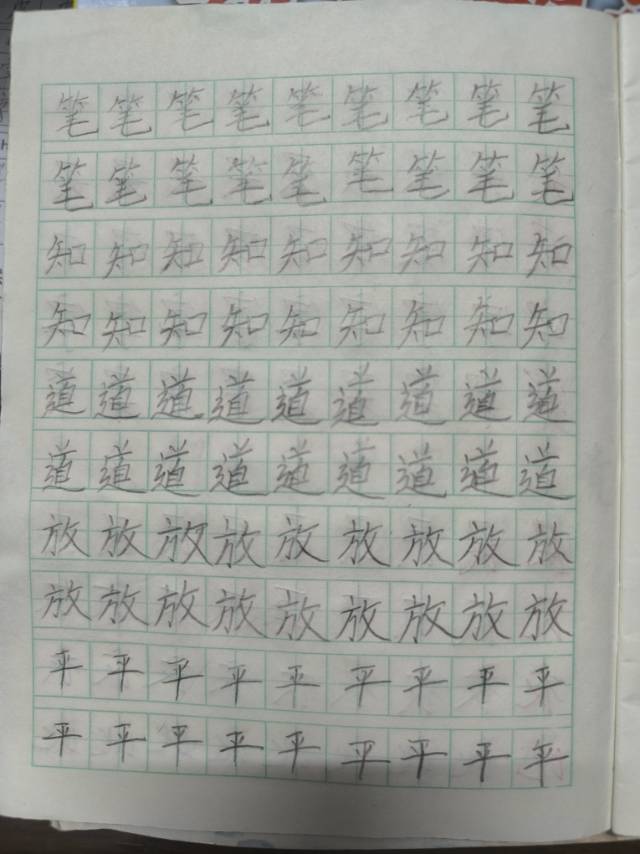 笔笔笔笔笔笔笔笔笔
笔笔笔笔笔笔笔笔笔
知知知知知知知知知
知知知知知知知知知
道道道道道道道道道
道道道道道道道道道
放放放放放放放放放
放放放放放放放放放
平平平平平平平平平
平平平平平平平平平